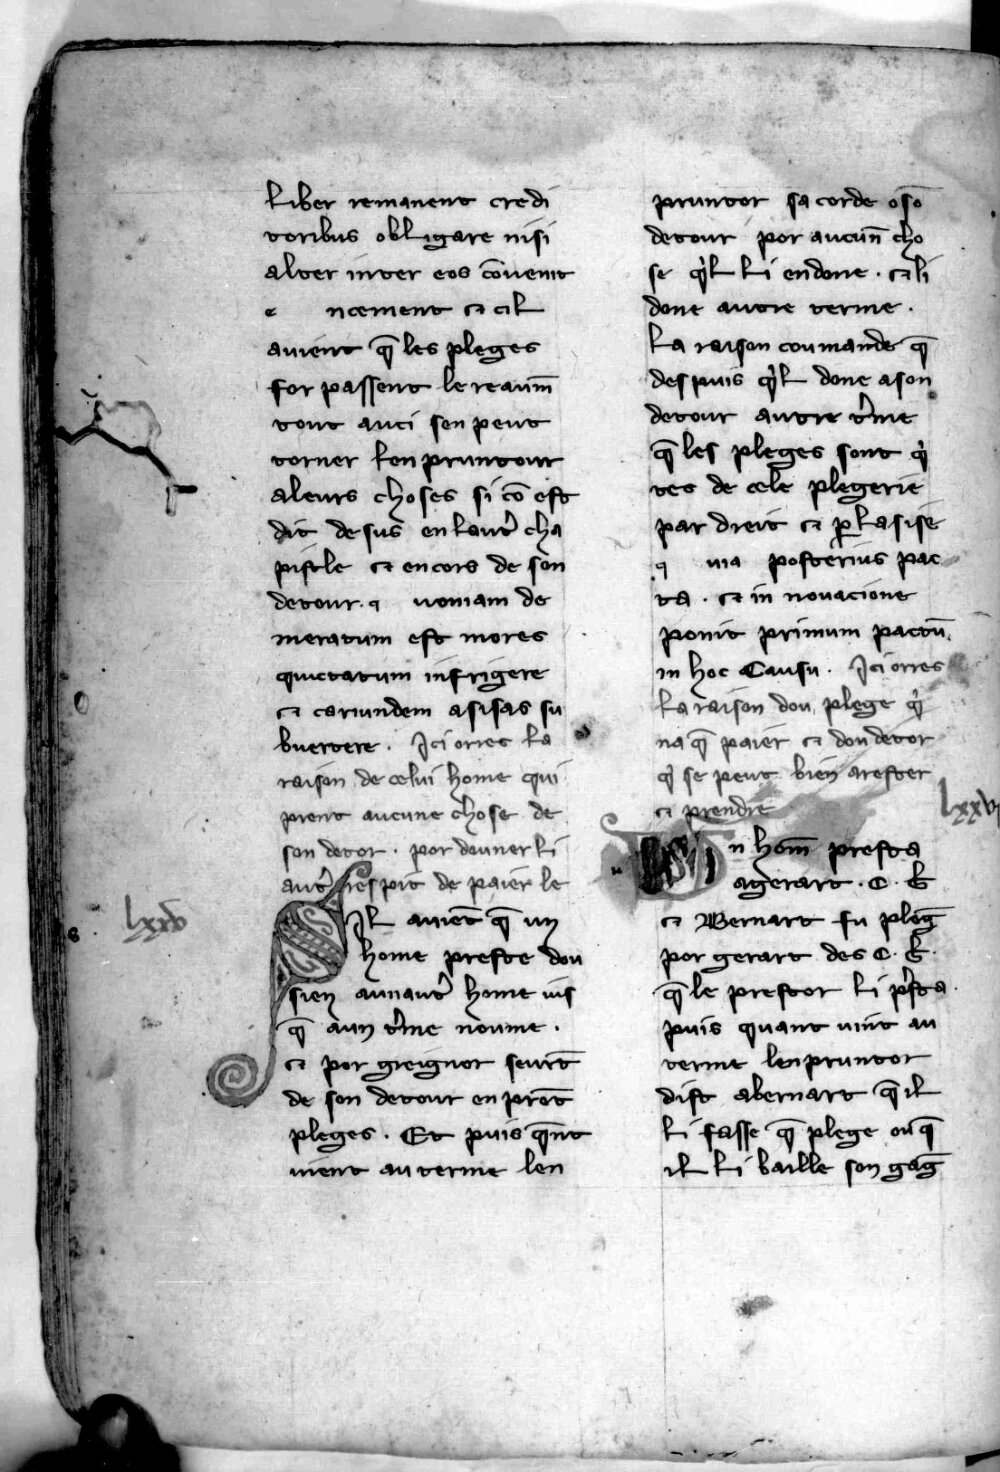 liber remanent credi
toribus obligare nisi
alter inter eos cōuenit
e ncement et cil
auient q̄ les pleges
for passent le reaum̄
tout auci sen peut
torner len pruntour
aleurs choses si cō est
dit desus en lautr̉ cha
pistle et encors de son
detour. q uoniam de
meratum est mores
quictatum infrigere
et cariundem asisas su
buertere. Ici orres la
raison de celui home qui
prent aucune chose de
son detor. por douner li
autr̉ respit de paier le
lxxv
s
Sil auiēt q̄ un
home preste dou
sien aunautr̉ home uis
q̄ aun tr̉me noume.
et por greignor seurt̄
de son detour en prōt
pleges. Et puis q̄nt
uient au terme len
pruntor sa corde osō
detour por aucun̄ cho
se q̉l li en done. et li
done autre terme.
la raison coumande q̄
despuis q̉l done ason
detour autre tr̉me
q̄ les pleges sont q̉
tes de cele plegerie
par dreit et p̱ lasise
q uia posterius pac
ta. et in nouacione
ponit primum pactū.
in hoc Causu. Ici orres
la raison dou plege q̉
na q̄ paier et dou detor
q̉ se peut bien arester
et prendre
lxxvi
u
Un hom̄ presta
agerart. C. b̄
et Bernart fu pleḡ
por gerart des C. b̄.
q̄ le prestor li pr̉sta.
puis quant uint au
terme lenpruntor
dist abernart q̄ il
li fasse q̄ plege ou q̄
il li baille son gaḡ